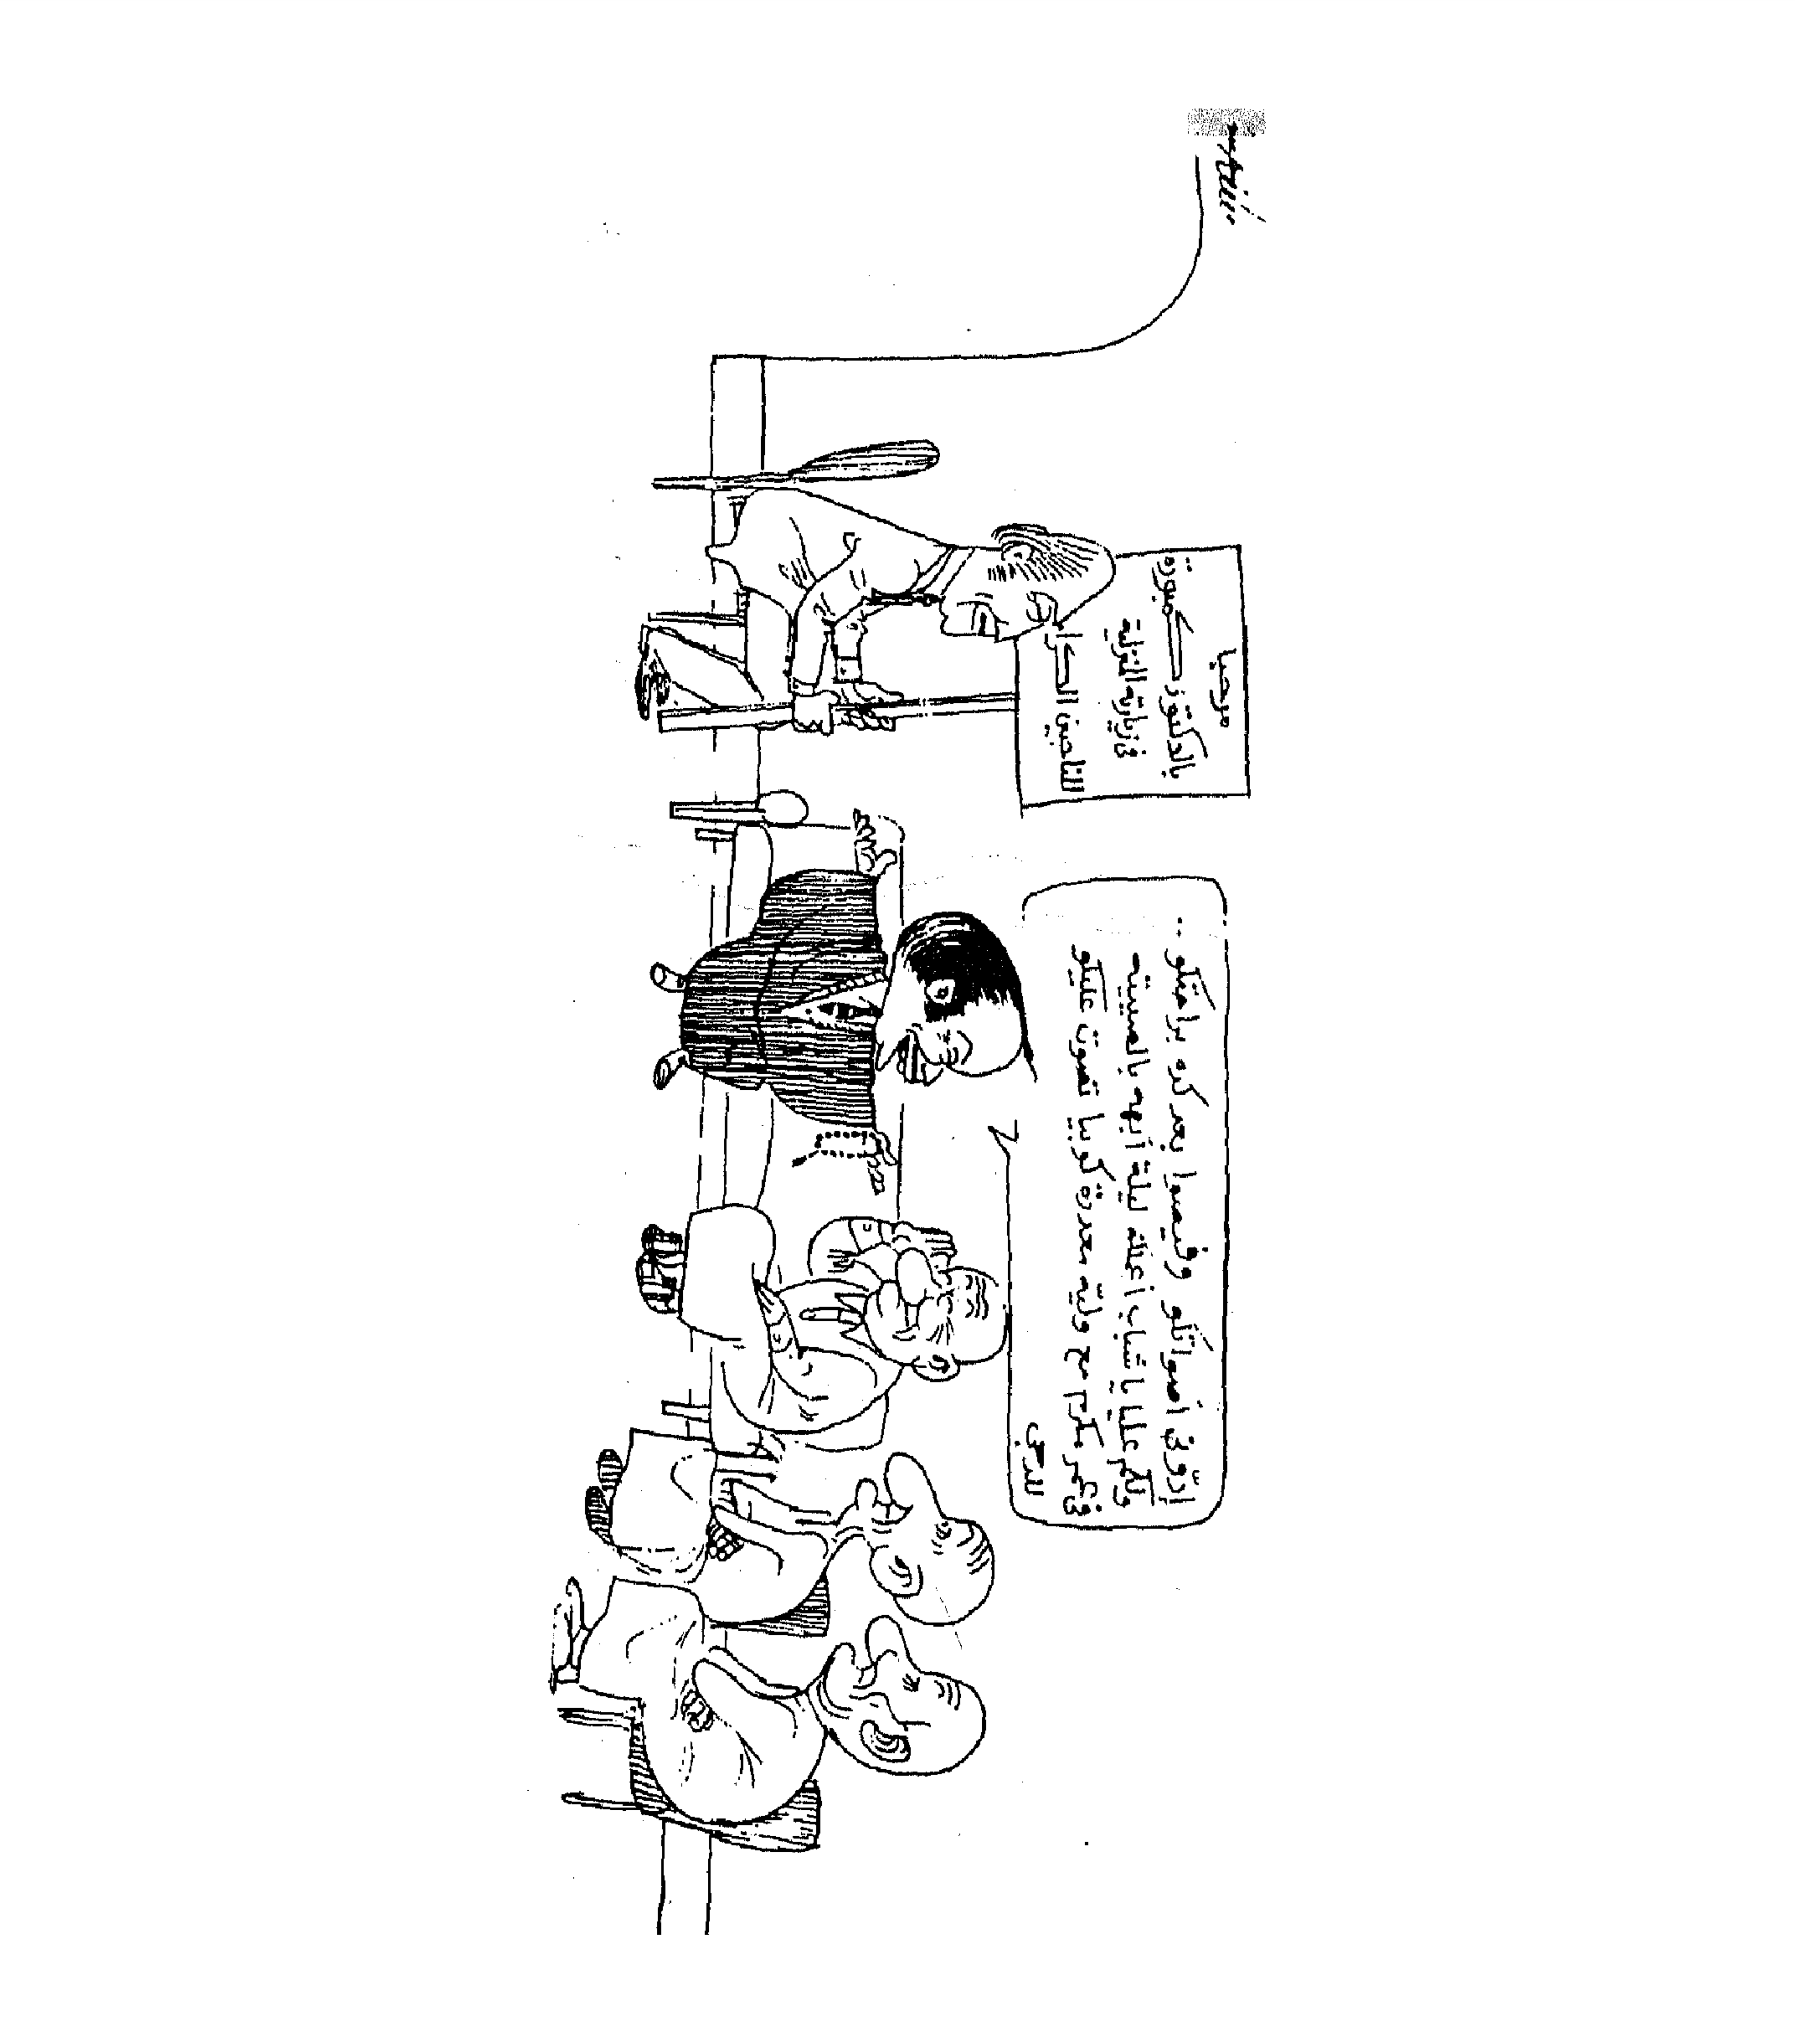 مرحبا
بالدكتور كمورة
في زيارته النزلية
للناخبين الكرام
إدوّني أصواتكو وفيصوا بعد كده براحتكو ..
ولكم عليا يا شباب أعملك ليلة أبهه
في عمر مكرم مع وليّه معددة تصوت عليكو